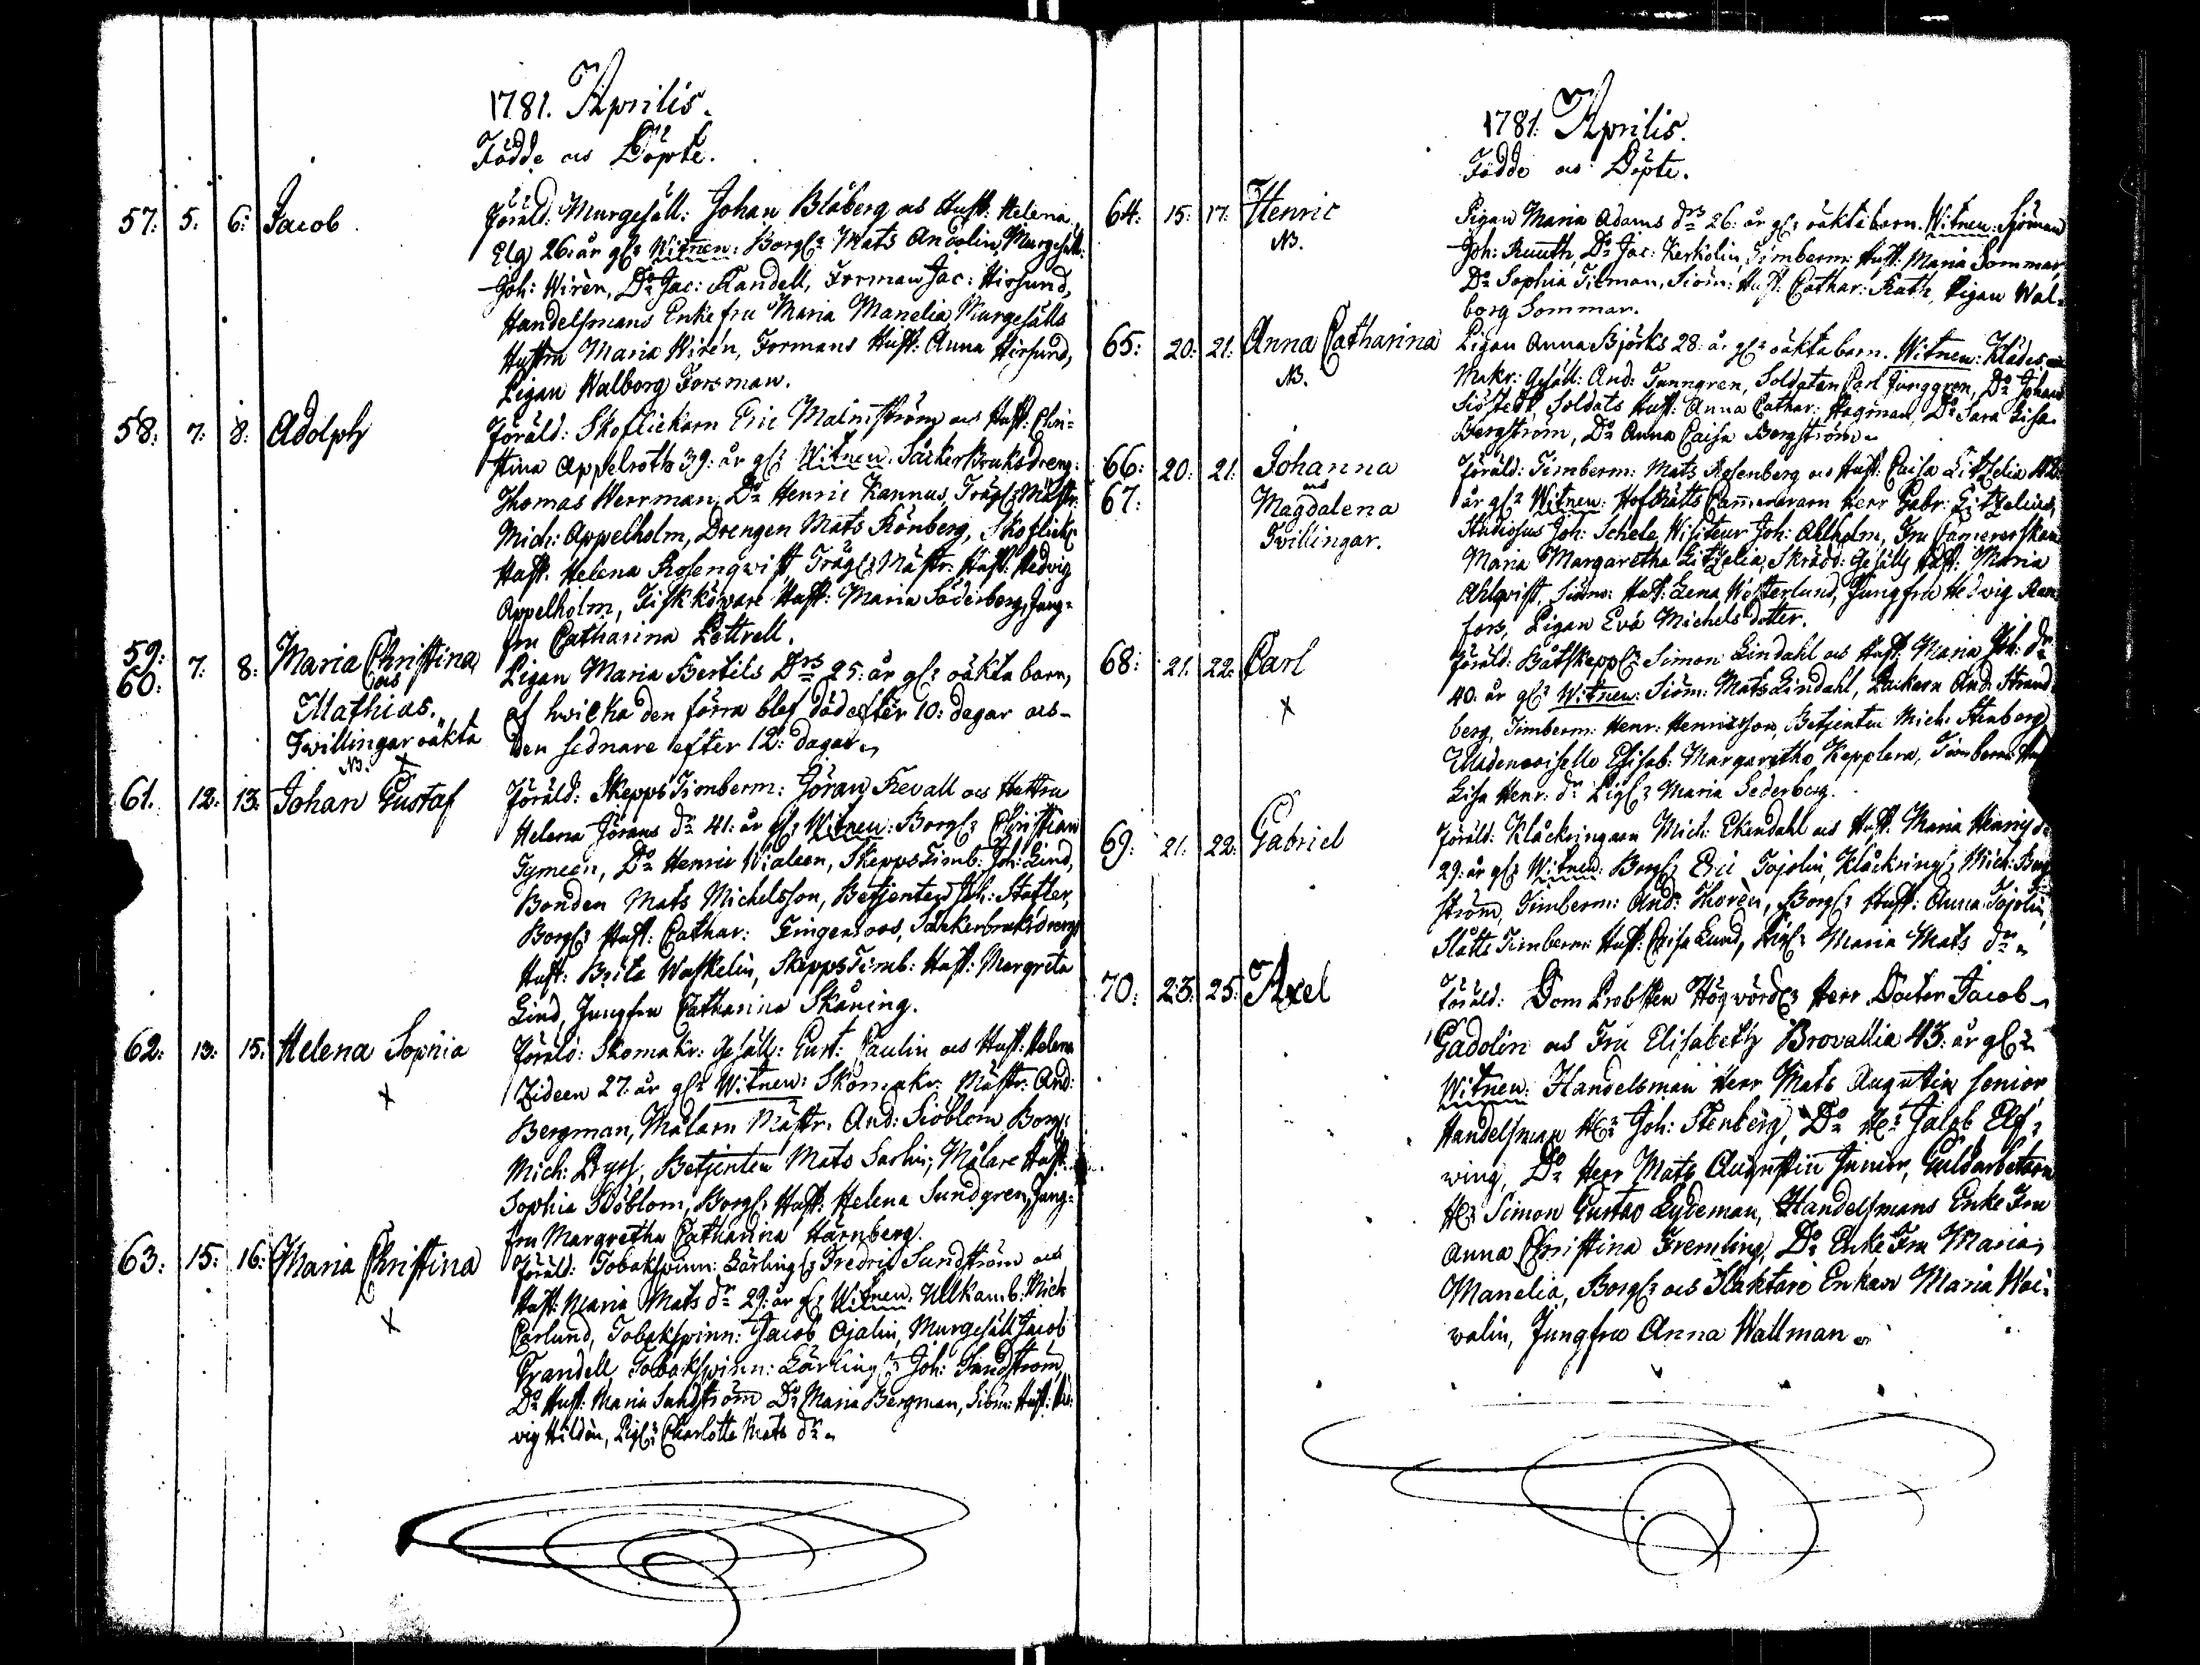 1781. Aprilis.
Födde och Döpte.
57: 5. 6: Jacob
Föräld: Murgesäll: Johan Blåberg och Hust: Helena
Elg 26: år gl: Witnen: Borgl: Mats Andolin, Murgesäll:
Joh: Wirèn, Do Jac: Randell, Forman Jac: Hirsund,
Handelsmans Enke fru Maria Manelia, Murgesälls
Hustru Maria Wirén, Formans Hust: Anna Hirsund,
Pigan Walborg Forsman.
58: 7: 8: Adolph
Föräld: Skoflickarn Eric Malmström och Hust: Chri=
stina Appelroth 39: år gl: Witnen: SåckerBruksdreng:
Thomas Werrman, Do Henric Kannus, Trägl: Mästr:
Mich: Appelholm, Drengen Mats Rönberg, Skoflick:
Hust. Helena Rosenqwist Trägl: Mästr: Hust: Hedvig
Appelholm, Fiskköpare Hust: Maria Söderberg, Jung=
fru Catharina Lottrell.
59: 60: 7: 8: Maria Christina
och
Mathias.
Twillingar oäkta
NB. x
Pigan Maria Bertils Drs 25: år gl: oäkta barn,
af hwilka den förra blef död efter 10: dagar och
den sednare efter 12: dagar.
61. 12: 13: Johan Gustaf
Föräld: Skepps Timberm: Jöran Frevall och Hustru
Helena Jörans dr 41: år gl: Witnen: Borgl: Christian
Tymeen, Do Henric Wialeen, Skepps Timb: Joh: Lind,
Bonden Mats Michelsson, Betjenten Joh: Statler,
Borgl: Hust: Cathar: Fingerroos, Såckerbruksdrengs
Hust: Brita Waskelin, Skepps Timb: Hust: Margreta
Lind, Jungfru Catharina Skåning.
62: 13: 15: Helena Sophia
x
Föräld: Skomakr: Gesäll: Gust: Paulin och Hust: Helena
Zideen 27: år gl: Witnen: Skomakr: Mästr: And:
Bergman, Målarn Mästr: And: Siöblom Borgl:
Mich: Pryss, Betjenten Mats Sarlin, Målare Hust:
Sophia Siöblom, Borgl: Hust: Helena Sundgren, Jung=
fru Margretha Catharina Harnberg.
63: 15: 16: Maria Christina
x
Föräld: Tobakspinn: Lärlingl: Fredric Sundström och
Hust: Maria Mats dr 29: år gl: Witnen: Ullkamb: Mich
Carlund, Tobakspinn: Jacob Ojalin, Murgesäll Jacob
Grandell Tobakspinn: Lärling: Joh: Sundström,
Do Hust: Maria Sundström Do Maria Bergman, Siöm: Hust: He:
vig Hildén, Pigl: Charlotta Mats dr
1781: Aprilis.
Födde och Döpte.
64: 15: 17: Henric
NB.
Pigan Maria Adams drs 26: år gl: oäkta barn. Witnen: Sjöman
Joh: Ruuth, Do Jac: Kerkolin, Timberm: Hust: Maria Sommar,
Do Sophia Tilman, Siöm: Hust: Cathar: Rath, Pigan Wal=
borg Sommar.
65: 20: 21: Anna Catharina
NB.
Pigan Anna Björks 28: år gl: oäkta barn. Witnen: Klädes
Makr: Gesäll: And: Tanngren, Soldaten Carl Junggren, Do Johan
Siöstedt, Soldats Hust: Anna Cathar: Hagman, Do Sara Lisa
Bergström, Do Anna Caisa Bergström.
66: 67: 20: 21: Johanna
och
Magdalena
Tvillingar.
Föräld: Timberm: Mats Rosenberg och Hust: Caisa Litzelia
år gl: Witnen: HofRätts Camereraren Herr Gabr: Litzelius,
Studiosus Joh: Schele, Visiteur Joh: Ahlholm, Fru Camererskan
Maria Margaretha Litzelia, Skrädd: Gesälls Hust: Maria
Ahlqvist, Siöm: Hust: Lena Westerlund, Jungfru Hedvig Ram=
fors, Pigan Eva Michels dotter.
68: 21. 22: Carl
x
Föräld: Båtskeppl: Simon Lindahl och Hust: Maria Joh: dr
40: år gl: Witnen: Siöm: Mats Lindahl, Backarn And: Strand
berg, Timberm: Henr: Henricsson, Betjenten Mich: Stenborg
Mademoiselle Elisab: Margaretha Kepplera, Timberm: Hust
Lisa Henr: dr Pigl: Maria Sederberg.
69: 21. 22: Gabriel
Föräld: Klåckringaren Mich: Ekendahl och Hust: Maria Henrics dr
29: år gl: Witnen: Borgl: Eric Tojolin, Klåckringl: Mich: Berg
ström, Timberm: And: Thorèn, Borgl: Hust: Anna Tojolin,
Slåtts Timberm: Hust: Caisa Lund, Pigl: Maria Mats dr
70: 23: 25: Axel
Föräld: Dom Probsten Högwördl: Herr Doctor Jacob
Gadolin och Fru Elisabeth Brovallia 43: år gl:
Witnen: Handelsman Herr Mats Augustin Senior,
Handelsman Hr: Joh: Stenberg, Do Hr: Jacob Elf=
wing, Do Herr Mats Augustin Junior, Guldarbetarn
Hr: Simon Gustav Lydeman, Handelsmans Enke Fru
Anna Christina Fremling, Do Enke Fru Maria
Manelia, Borgl: och Slaktare Enkan Maria Wai=
walin, Jungfru Anna Wallman